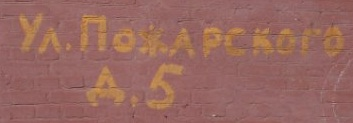 Ул. Пожарского
д. 5